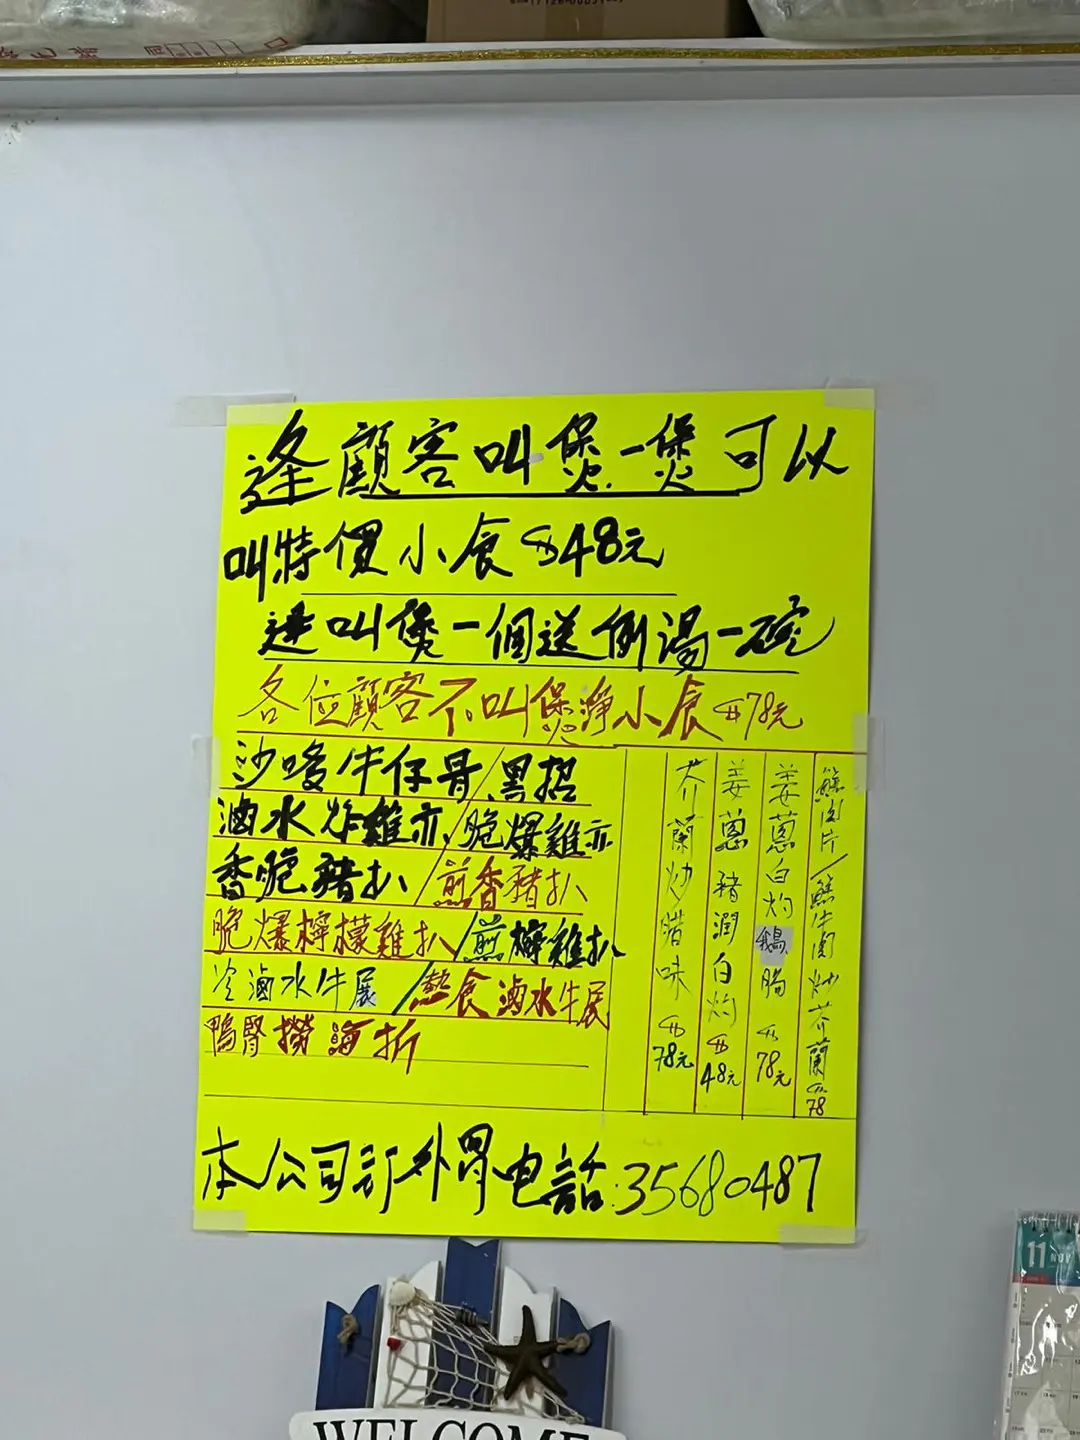 逢顧客叫煲一煲可以
叫特價小食$48元
逢叫煲一個送例湯一碗
各位顧客不叫煲淨小食$78元
沙嗲牛仔骨/黑招
滷水炸雞亦/脆爆雞亦
香脆豬扒/煎香豬扒
脆爆檸檬雞扒/煎檸雞扒
冷滷水牛展/熱食滷水牛展
鴨腎撈海折
芥蘭炒腊味$78元
姜蔥豬潤白灼$48元
姜蔥白灼鵝腸$78元
鯪肉片/鯪牛肉炒芥蘭$78
本公司訂外胃电話:35680487
11 NOV
WELCOME